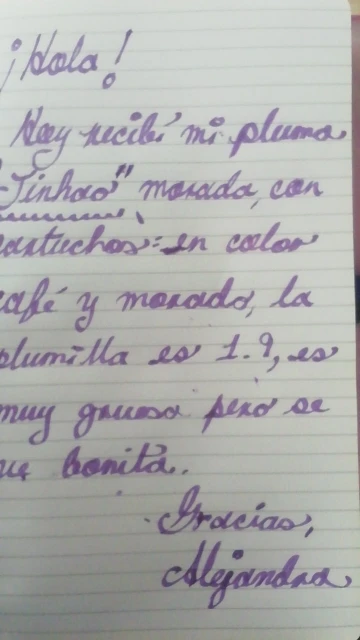 ¡Hola!
Hoy recibí mi pluma
"Jinhao" morada, con
cartuchos: en color
café y morado, la
plumilla es 1.9, es
muy gruesa pero se
ve bonita.
Gracias,
Alejandra